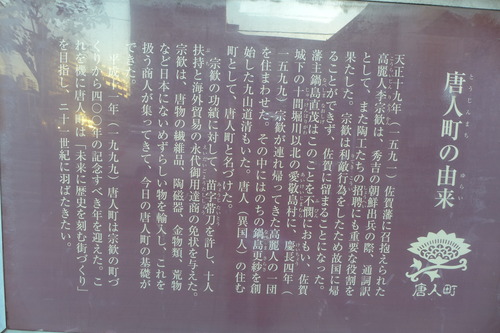 唐人町の由来
とうじんまち
ゆらい
天正十九年(一五九一)佐賀藩に召抱えられた
高麗人李宗歓は、秀吉の朝鮮出兵の際、通詞訳
として、また陶工たちの招聘にも重要な役割を
果たした。宗歓は利敵行為をしたため故国に帰
ることができず、佐賀に留まることになった。
藩主鍋島直茂はこのことを不憫におもい、佐賀
城下の十間堀川以北の愛敬島村に、慶長四年(
一五九九)宗歓が連れ帰ってきた高麗人の一団
を住まわせた。その中にはのちの鍋島更紗を創
始した九山道清もいた。唐人(異国人)の住む
町として、唐人町と名づけた。
宗歓の功績に対して、苗字帯刀を許し、十人
扶持と海外貿易の永代御用達商の免状を与えた。
宗歓は、唐物の繊維品、陶磁器、金物類、荒物
など日本にないめずらしい物を輸入し、これを
扱う商人が集ってきて、今日の唐人町の基礎が
できた。
年(一九九九)唐人町は宗歓の町づ
くりから四〇〇年の記念すべき年を迎えた。こ
れを機に唐人町は「未来に歴史を刻む街づくり」
を目指し、二十一世紀に羽ばたきたい。
唐人町